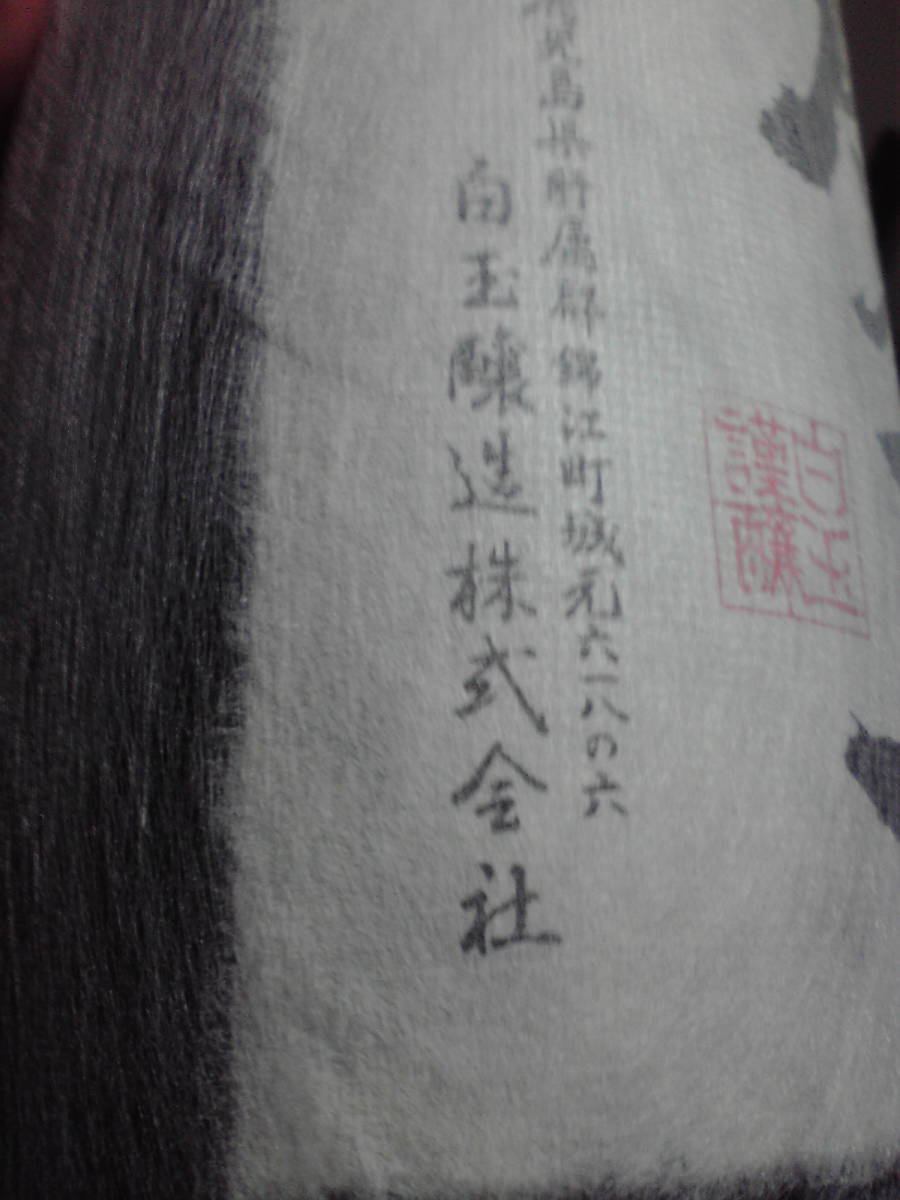 鹿児島県肝属郡錦江町城元六一八の六
白玉醸造株式会社
白玉
謹醸